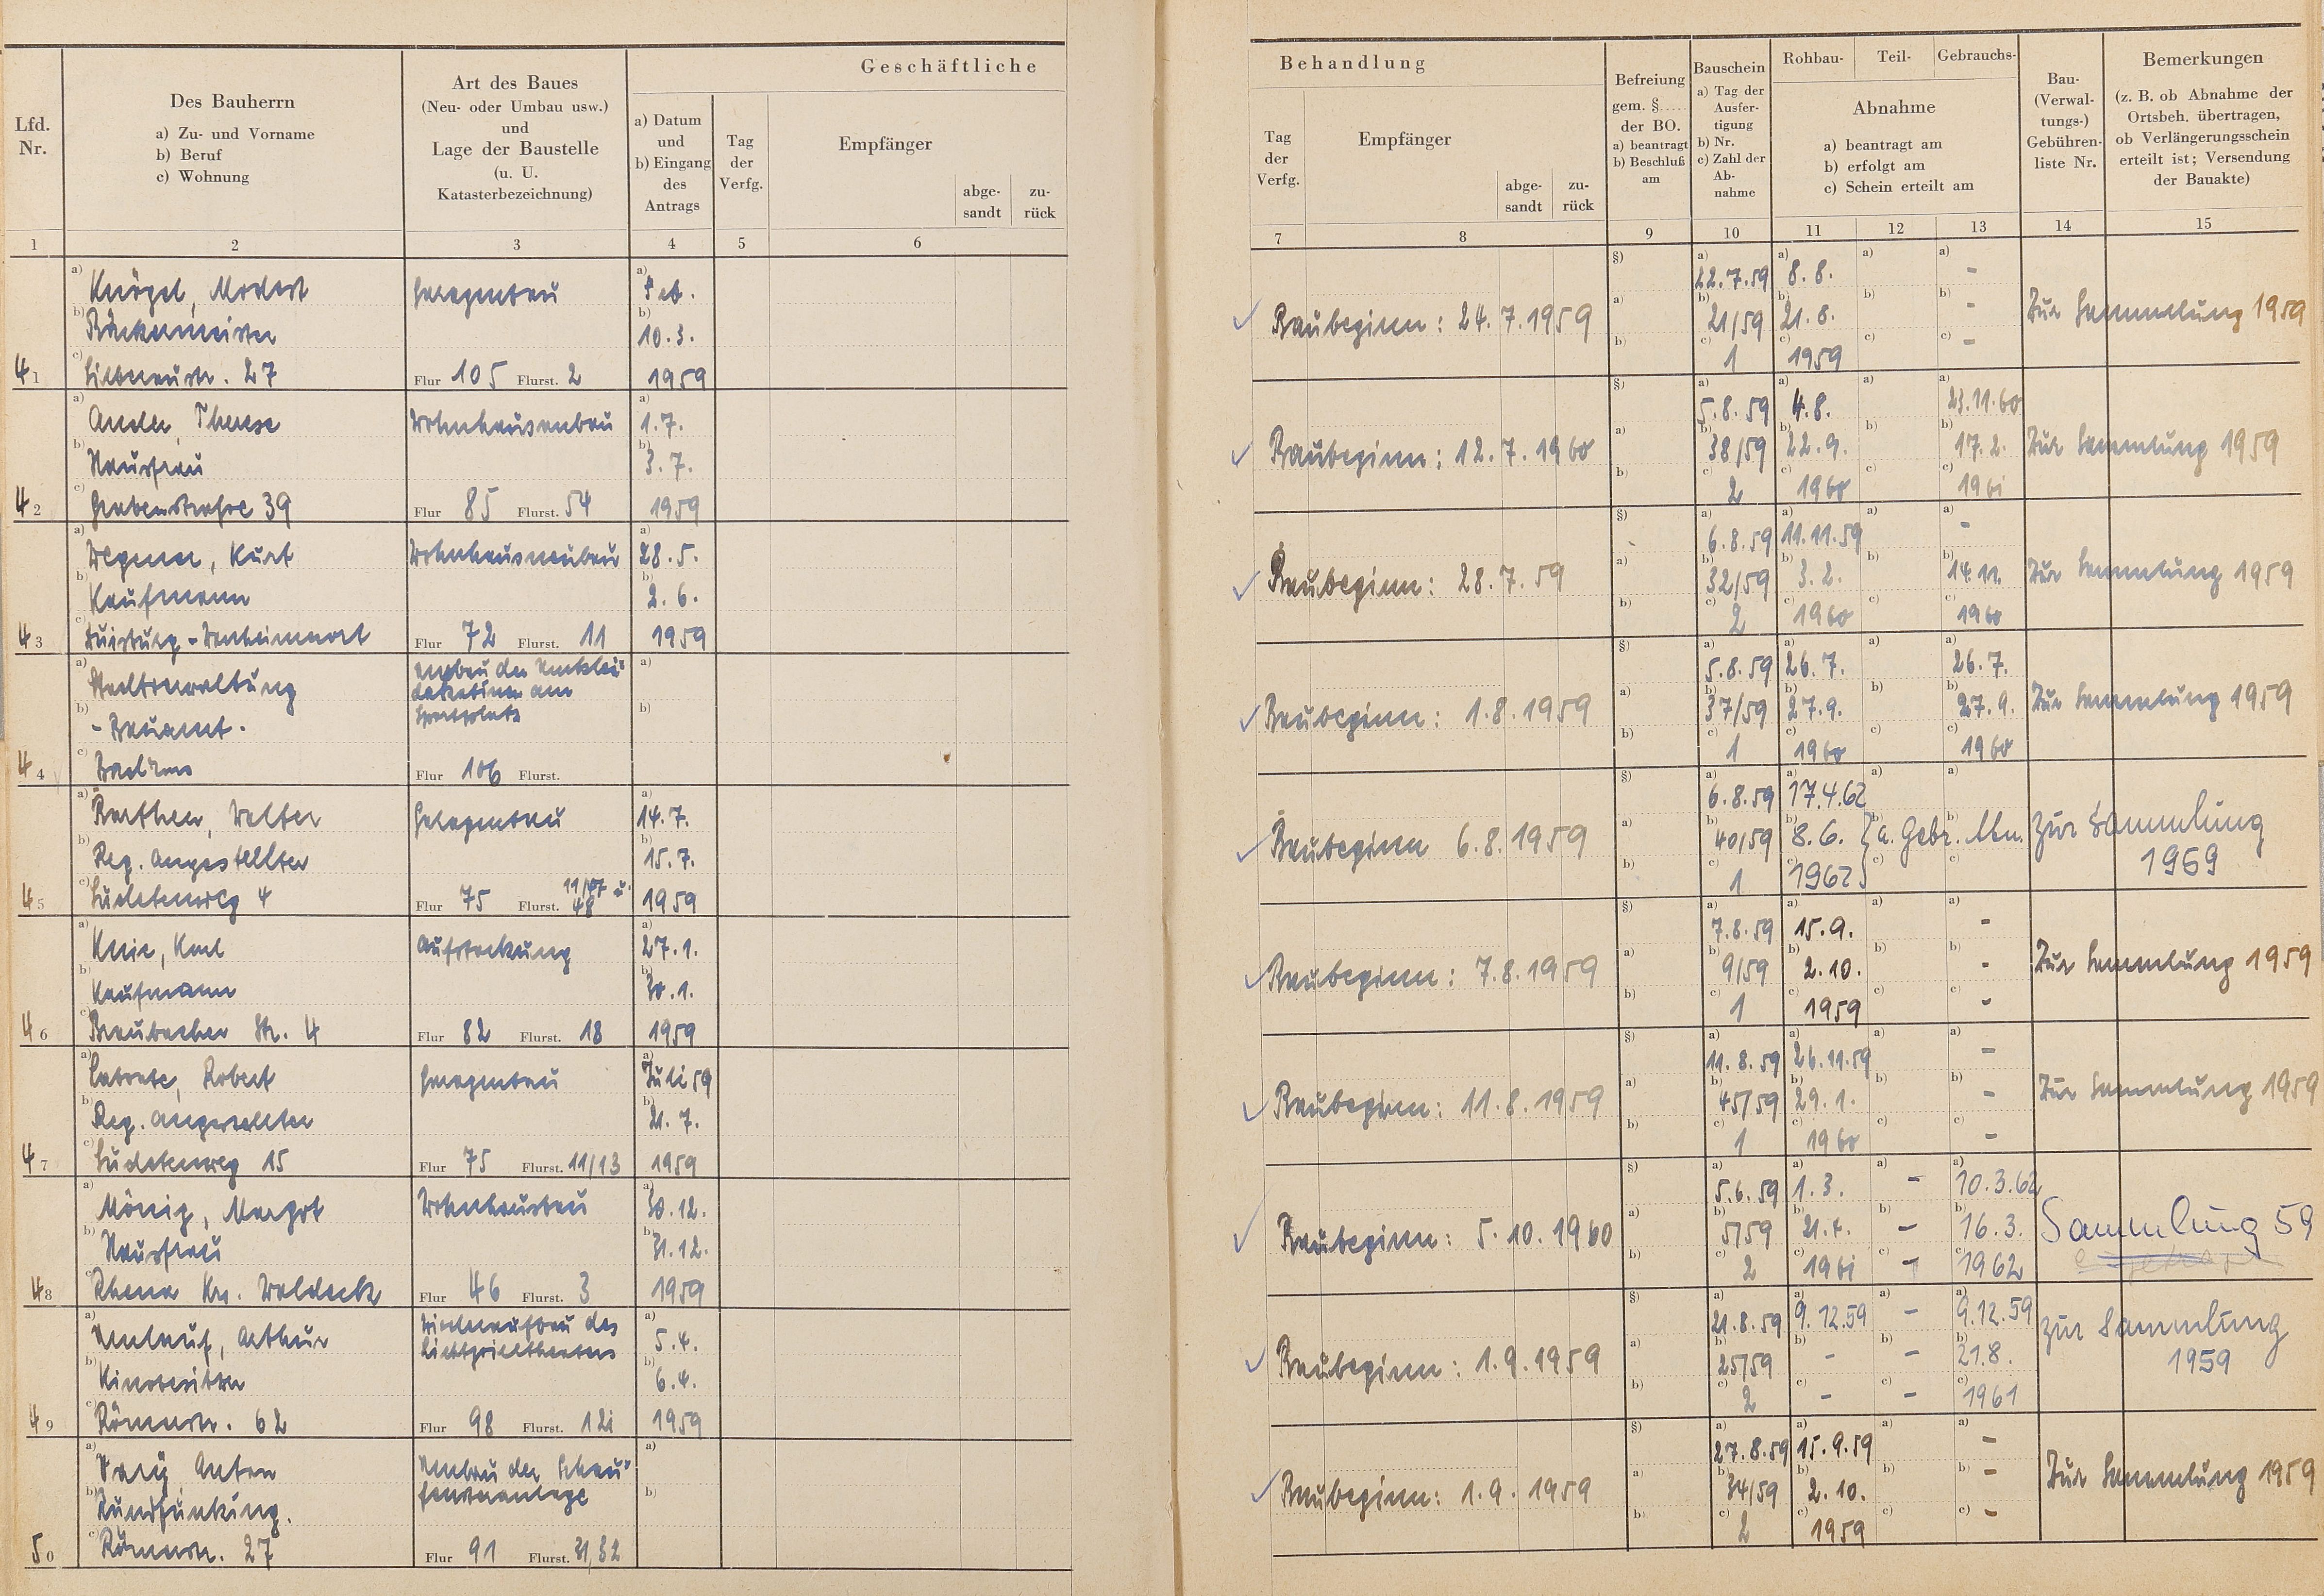 Geschäftliche
Lfd. Nr.
Des Bauherrn
a) Zu- und Vorname
b) Beruf
c) Wohnung
Art des Baues
(Neu- oder Umbau usw.)
und
Lage der Baustelle
(u. U.
Katasterbezeichnung)
a) Datum
und
b) Eingang
des
Antrags
Tag
der
Verfg.
Empfänger
abge-
sandt
zu-
rück
1 2 3 4 5 6
a) Modest Garagenbau a) Feb.
b) Bäckermeister b) 10.3.
41 c) 27 Flur 105 Flurst. 2 1959
a) Therese Wohnhausanbau a) 1.7.
b) Hausfrau b) 3.7.
42 c) Grabenstraße 39 Flur 85 Flurst. 54 1959
a) Wegener, Kurt Wohnhausneubau a) 28.5.
b) Kaufmann b) 2.6.
43 c) Duisburg-Wanheimerort Flur 72 Flurst. 11 1959
a) Stadtverwaltung Umbau der Umklei- a)
dekabinen am
b) - Bauamt - Sportplatz b)
44 c) Flur 106 Flurst.
a) Walter Garagenbau a) 14.7.
b) Reg. Angestellter b) 15.7.
45 c) Sudetenweg 4 Flur 75 Flurst. 11/47 u. 48 1959
a) Knie, Karl Aufstockung a) 27.1.
b) Kaufmann b) 30.1.
46 c) Braubacher Str. 4 Flur 82 Flurst. 18 1959
a) Robert Garagenbau a) Juli 59
b) Reg. Angestellter b) 21.7.
47 c) Sudetenweg 15 Flur 75 Flurst. 11/13 1959
a) Mönig, Margot Wohnhausbau a) 30.12.
b) Hausfrau b) 31.12.
48 c) Rhena Kr. Waldeck Flur 46 Flurst. 3 1959
a) Umlauf, Arthur Wiederaufbau des a) 5.4.
Lichtspieltheaters
b) Kinobesitzer b) 6.4.
49 c) Römerstr. 62 Flur 98 Flurst. 121 1959
a) Anton Umbau der Schau- a)
b) Rundfunking. fensteranlage b)
50 c) Römerstr. 27 Flur 91 Flurst. 31,32
Behandlung
Tag
der
Verfg.
Empfänger
abge-
sandt
zu-
rück
Befreiung
gem. §
der BO.
a) beantragt
b) Beschluß
am
Bauschein
a) Tag der
Ausfer-
tigung
b) Nr.
c) Zahl der
Ab-
nahme
Rohbau- Teil- Gebrauchs-
Abnahme
a) beantragt am
b) erfolgt am
c) Schein erteilt am
Bau-
(Verwal-
tungs-)
Gebühren-
liste Nr.
Bemerkungen
(z. B. ob Abnahme der
Ortsbeh. übertragen,
ob Verlängerungsschein
erteilt ist; Versendung
der Bauakte)
7 8 9 10 11 12 13 14 15
§) a) 22.7.59 a) 8.8. a) a) -
Baubeginn: 24.7.1959 a) b) 21/59 b) 21.8. b) b) - Zur Sammlung 1959
b) c) 1 c) 1959 c) c) -
§) a) 5.8.59 a) 4.8. a) a) 23.11.60
Baubeginn: 12.7.1960 a) b) 38/59 b) 22.9. b) b) 17.2. Zur Sammlung 1959
b) c) 2 c) 1960 c) c) 1961
§) a) 6.8.59 a) 11.11.59 a) a) -
Baubeginn: 28.7.59 a) b) 32/59 b) 3.2. b) b) 14.11. Zur Sammlung 1959
b) c) 2 c) 1960 c) c) 1960
§) a) 5.8.59 a) 26.7. a) a) 26.7.
Baubeginn: 1.8.1959 a) b) 37/59 b) 27.9. b) b) 27.9. Zur Sammlung 1959
b) c) 1 c) 1960 c) c) 1960
§) a) 6.8.59 a) 17.4.62 a) a)
Baubeginn 6.8.1959 a) b) 40/59 b) 8.6. b) a. Gebr. Abn. zur Sammlung
b) c) 1 c) 1962 c) c) 1959
§) a) 7.8.59 a) 15.9. a) a) -
Baubeginn: 7.8.1959 a) b) 9/59 b) 2.10. b) b) - Zur Sammlung 1959
b) c) 1 c) 1959 c) c) -
§) a) 11.8.59 a) 26.11.59 a) a) -
Baubeginn: 11.8.1959 a) b) 45/59 b) 29.1. b) b) - Zur Sammlung 1959
b) c) 1 c) 1960 c) c) -
§) a) 5.6.59 a) 1.3. a) - a) 10.3.62
Baubeginn: 5.10.1960 a) b) 5/59 b) b) - b) 16.3. Sammlung 59
b) c) 2 c) 1961 c) - c) 1962
§) a) 21.8.59 a) 9.12.59 a) - a) 9.12.59
Baubeginn: 1.9.1959 a) b) 25/59 b) - b) - b) 21.8. zur Sammlung
b) c) 2 c) - c) - c) 1961 1959
§) a) 27.8.59 a) 15.9.59 a) a) -
Baubeginn: 1.9.1959 a) b) 34/59 b) 2.10. b) b) - Zur Sammlung 1959
b) c) 2 c) 1959 c) c) -